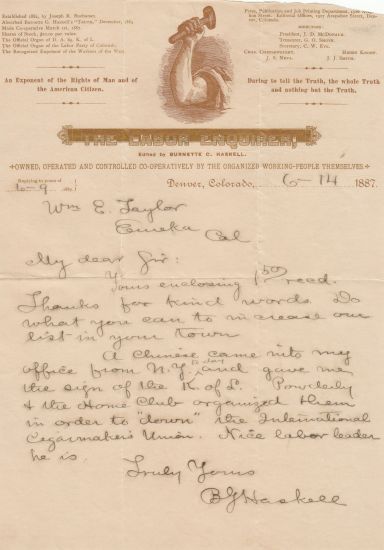 Established 1882, by Joseph R. Buchanan.
Absorbed Burnette G. Haskell's "TRUTH," December, 1884
Made Co-operative March 1st, 1887.
Shares of Stock,
The Official Organ of D. A. 89, K. of L.
The Official Organ of the Labor Party of Colorado.
The Recognized Exponent of the Workers of the West.
An Exponent of the Rights of Man and of
the American Citizen.
Press, Publication and Job Printing Department,
Editorial Offices, 1927 Arapahoe Street, Denver, Colorado.
DIRECTORS:
President, J. D. McDonald.
Treasurer,
Secretary, C. W. Eve.
Daring to tell the Truth, the whole Truth
and nothing but the Truth.
THE LABOR ENQUIRER,
Edited by BURNETTE G. HASKELL.
OWNED, OPERATED AND CONTROLLED CO-OPERATIVELY BY THE ORGANIZED WORKING-PEOPLE THEMSELVES
Replying to yours of
6-9 1887.
Denver, Colorado, 6-14 1887.
Wm E. Taylor
Eureka
Cal
My dear Sir:
Yours enclosing 1 50 recd.
Thanks for kind words. Do
what you can to increase our
list in your town
A Chinese came into my
office from N.Y. to day and gave me
the sign of the K. of L. Powderly
& the Home Club organized them
in order to "down" the International
Cigarmakers Union. Nice labor leader
he is.
Truly Yours
B G Haskell